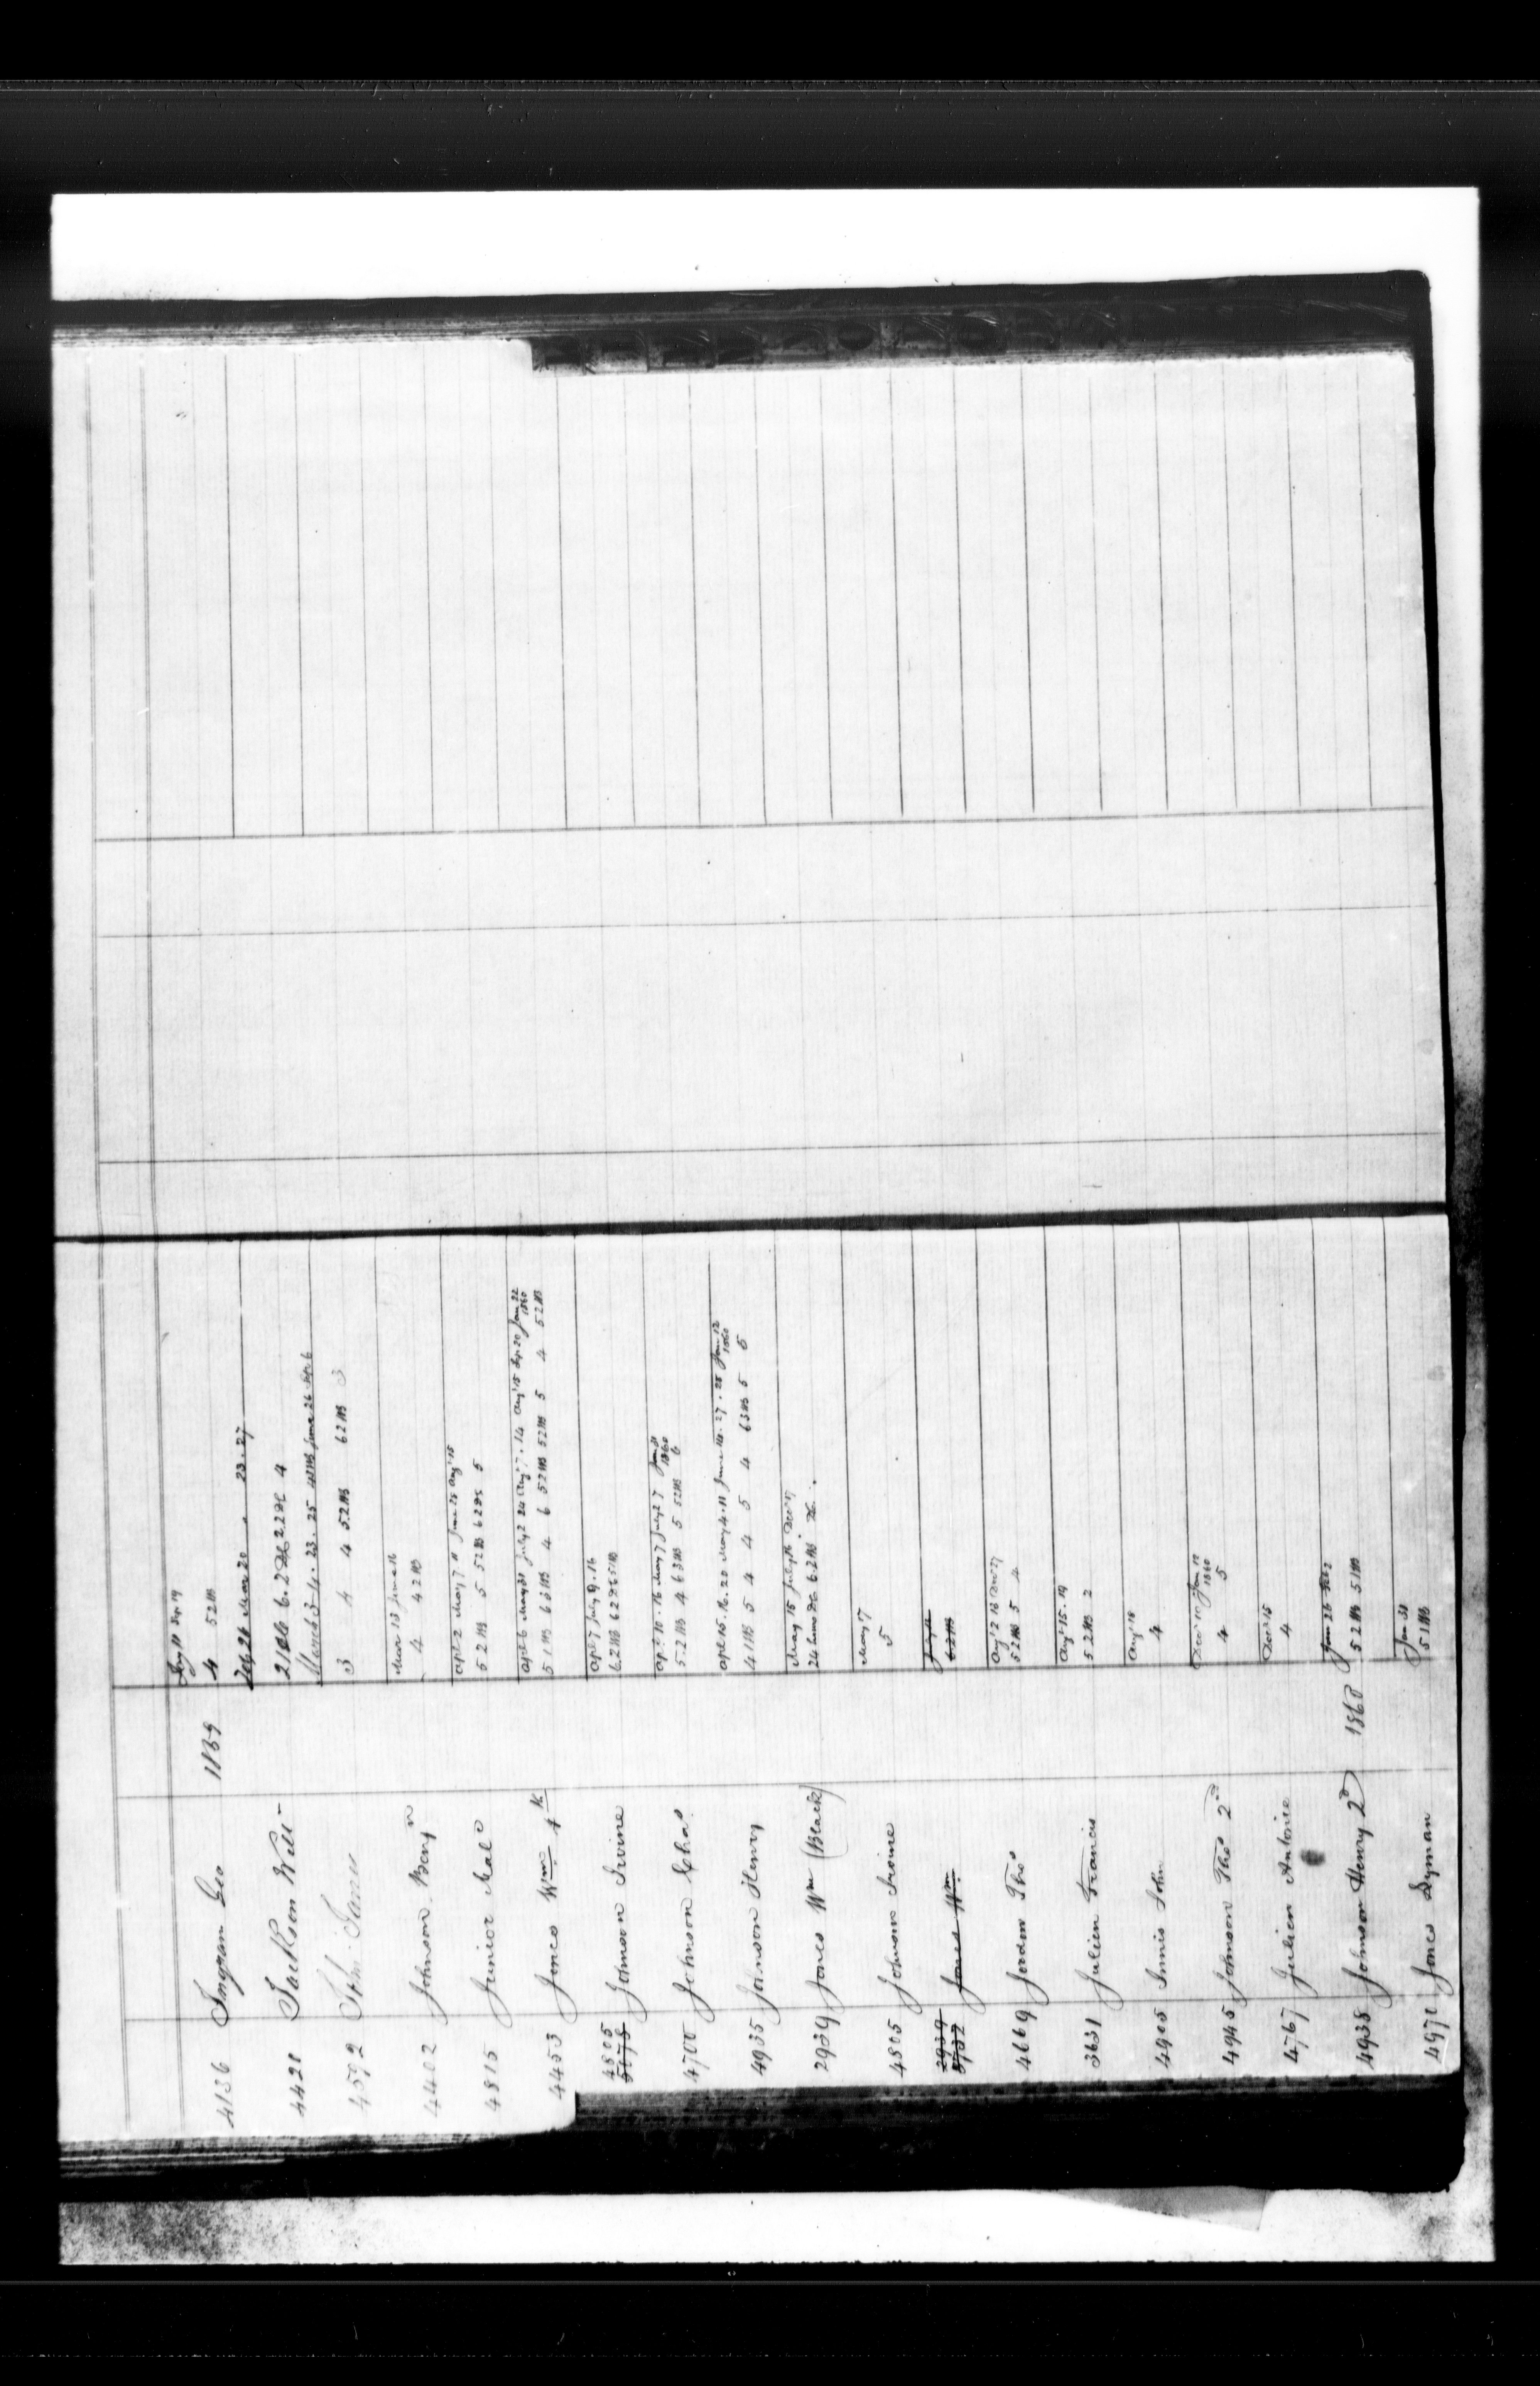 4136 Ingram Geo 1859 Jany 11 Sep 19
4 5 2 MB
Feb 26 Mar 20 . 23 . 27
4421 Jackson Will
March 3 4 . 23 . 25 June 26 Sep 6
4592 Jane 3 4 4 5.2 MB 6 2 MB 3
Mar 13 June 16
4402 Johnson Benjn 4 4 2 MB
Apl 2 May 7 11 June 25 Aug 15
4815 Junior Malo 5 2 MB 5 5 2 MB 6 2 DC 5
Apl 6 May 31 July 2 24 Aug 7 . 14 Aug 15 Sep 20 Jan 22 1860
4453 Jones Wm 4th 5 1 MB 6 3 MB 4 6 5 2 MB 5 2 MB 5 4 5 2 MB
Apl 7 July 9 . 16
4805 5078 Johnson Irvine 6.2 MB 6 2 DC 5 1 MB
Apl 10 . 16 May 7 July 2 7 Jan 31 1860
4700 Johnson Chas 5.2 MB 4 6 3 MB 5 5 2 MB 6
Apl 15 . 16 . 20 May 4 . 11 June 14 . 27 . 28 Jan 12 1860
4935 Johnson Henry 4 1 MB 5 4 4 5 4 6 3 MB 5 5
May 15 July 16 Dec 17
2939 Jones Wm (Black) 24 hours DC 6.2 MB DC
May 17
4805 Johnson Irvine 5
July 12
2939 3732 Jones Wm 6.2 MB
Aug 2 18 Dec 27
4669 Jordon Thos 5 2 MB 5 4
Aug 15 . 19
3631 Julien Francis 5 2 MB 2
Aug 18
4905 Innis John 4
Dec 10 Jan 12 1860
4945 Johnson Thos 2nd 4 5
Dec 15
4767 Julien Antoine 4
Jan 26 Feb 2
4938 Johnson Henry 2d 1860 5 2 MB 5 1 MB
Jan 31
4971 Jones Lyman 5 1 MB